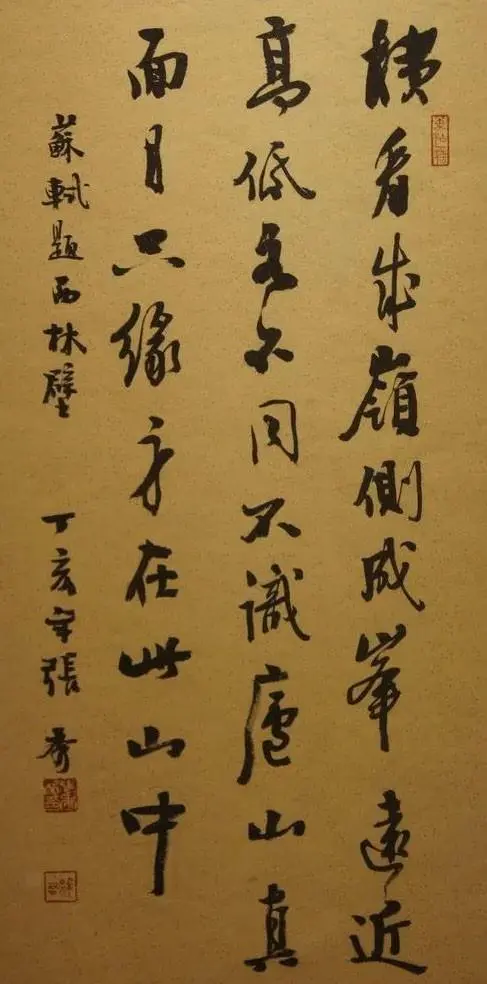 橫看成嶺側成峯遠近
高低各不同不識廬山真
面目只緣身在此山中
蘇軾題西林壁 丁亥 張